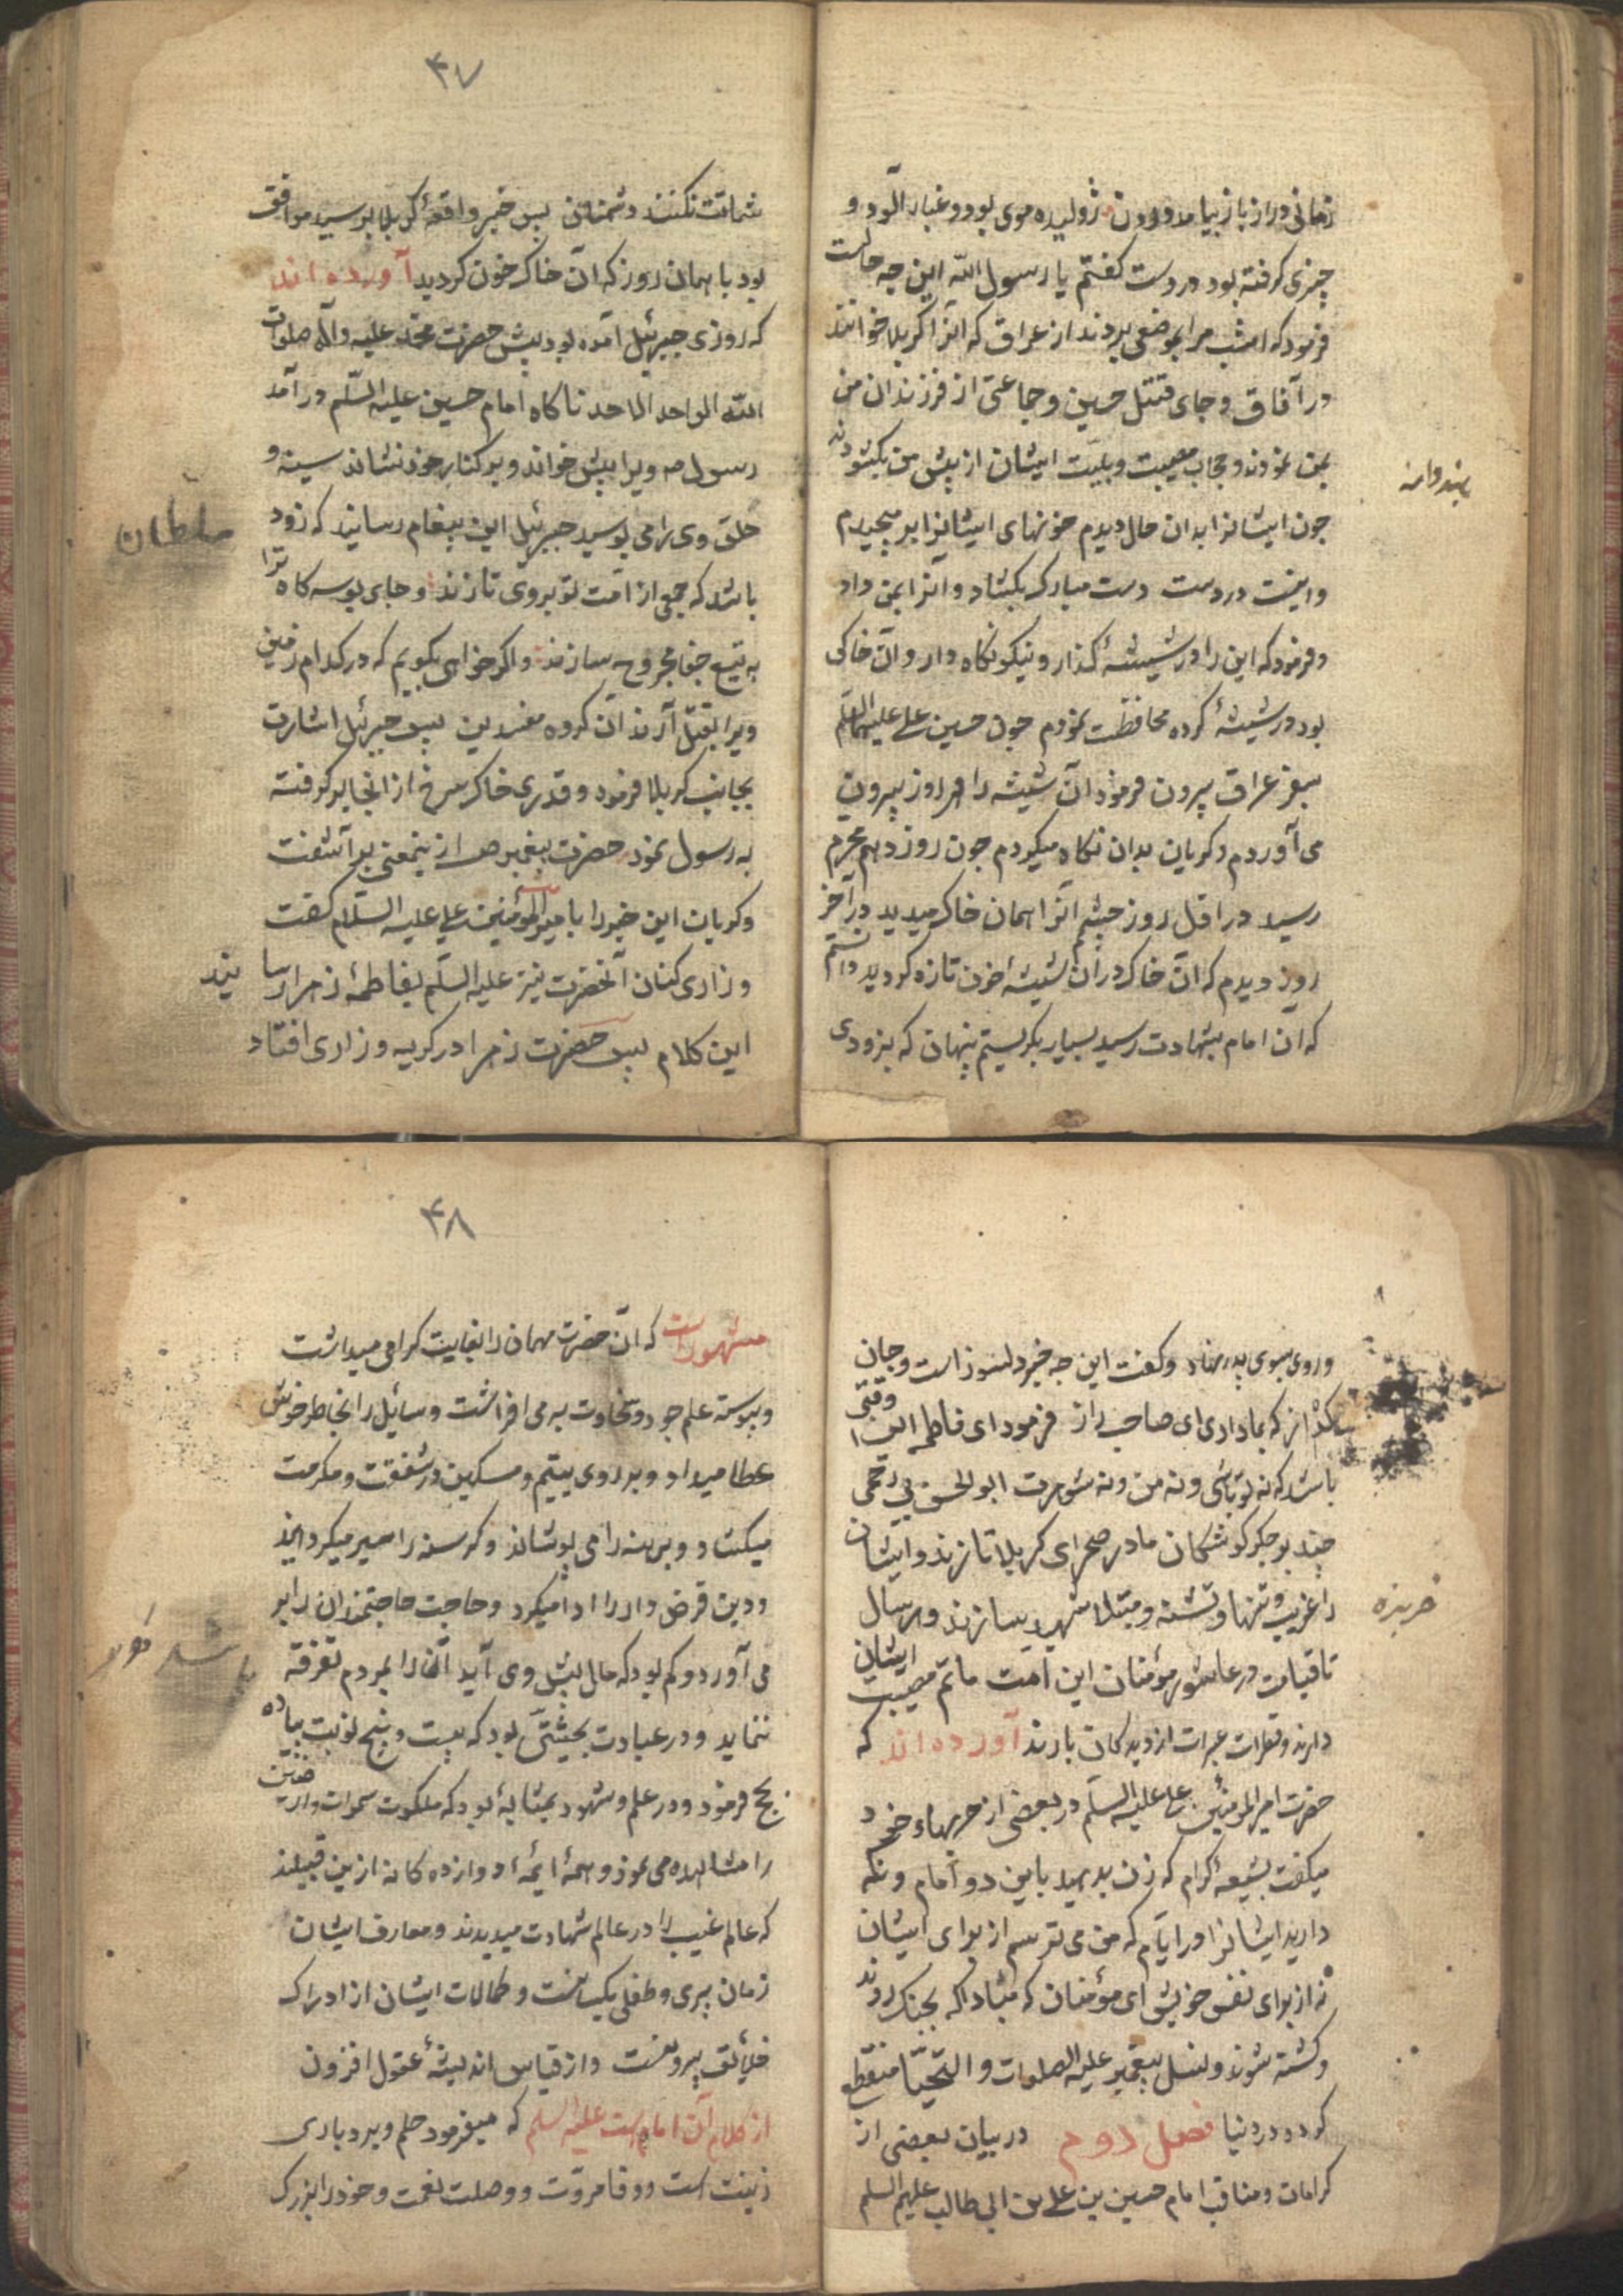 زمانی دراز باز نیامد و درون ژولیده موی بود و غبار آلود و
چیزی گرفته بود در دست گفتم یا رسول الله این چه حالست
فرمود که امشب مرا بموضعی بردند از عراق که آنرا کربلا خوانند
در آفاق و جای قتل حسین و جماعتی از فرزندان من
بمن نمودند و حجاب مصیبت و بلیت ایشان از پیش من بکشودند
چون ایشانرا بدان حال دیدم خونهای ایشانرا بر میچیدم
و اینست در دست دست مبارک بکشاد و آنرا بمن داد
و فرمود که این را در شیشهٔ گذار و نیکو نگاه دار و آن خاکی
بود در شیشهٔ کرده محافظت نمودم چون حسین علی علیهما السلم
بسفر عراق بیرون فرمود آن شیشه را هر روز بیرون
می آوردم و گریان بدان نگاه میکردم چون روز دهم محرم
رسید در اول روز چشم آنرا همان خاک میدید در آخر
روز دیدم که آن خاک در آن شیشهٔ خون تازه گردید دانستم
که آن امام بشهادت رسید بسیار بگریستم پنهان که بزودی
۴۷
شماتت نکنند دشمنان پس خبر واقعهٔ کربلا برسید موافق
بود با همان روز که آن خاک خون گردید آورده اند
که روزی جبرئیل آمده بود پیش حضرت محمد علیه و آله صلوات
الله الواحد الماحد ناگاه امام حسین علیه السّلم در آمد
رسول ص ویرا پیش خواند و بر کنار خود نشاند سینه و
حلق وی را می بوسید جبرئیل این پیغام رسانید که زود
باشد که جمعی از امّت تو بر وی تازند و جای بوسه گاه ترا
به تیغ جفا مجروح سازند و اگر خواهی بگویم که در کدام زمین
ویرا بقتل آرند آن گروه مفسدین پس جبرئیل اشارت
بجانب کربلا فرمود و قدری خاک سرخ از انجا بر گرفته
به رسول نمود حضرت پیغمبر ص از ینمعنی بر آشفت
و گریان این خبر را با امیر المؤمنین علی علیه السّلام گفت
و زاری کنان آنحضرت نیز علیه السّلم بفاطمهٔ زهرا رسانید
این کلام پس حضرت زهرا در گریه و زاری افتاد
سلطان
و روی بسوی پدر نهاد و گفت این چه خبر دلسوز است و جان
گداز که بما دادی ای صاحب راز فرمود ای فاطمه این وقتی
باشد که نه تو باشی و نه من و نه شوهرت ابو الحسن بی رحمی
چند بر جگر گوشگان ما در صحرای کربلا تازند و ایشان
را غریب و تنها و تشنه و مبتلا شهید سازند و هر سال
تا قیامت در عاشور مؤمنان این امت ماتم مصیبت ایشان
دارند و قطرات عبرات از دیدگان بارند آورده اند که
حضرت امیر المؤمنین علی علیه السلم در بعضی از حربهاء خود
میگفت بشیعهٔ کرام که زن بدهید باین دو امام و نگه
دارید ایشانرا در ایّام که من می ترسم از برای ایشان
نه از برای نفس خویش ای مؤمنان که مبادا که بجنگ روند
و کشته شوند و نسل پیغمبر علیه الصلوات و التحیّا منقطع
گردد در دنیا فصل دوم در بیان بعضی از
کرامات و مناقب امام حسین بن علی بن ابی طالب علیهم السلم
خربزه
۴۸
مشهور است که آن حضرت مهمان را بغایت گرامی میداشت
و پیوسته علم جود و سخاوت بر می افراشت و سایل را بخاطر خوش
عطا میداد و بر روی یتیم و مسکین در شفقت و مکرمت
میکشاد و برهنه را می پوشاند و گرسنه را سیر میگردانید
و دین قرض دار را ادا میکرد و حاجت حاجتمندان را بر
می آورد و کم بود که مال پیش وی آید آن را بمردم تفرقه
ننماید و در عبادت بحیثتی بود که بیست و پنج نوبت پیاده
حج فرمود و در علم و شهود بمثابهٔ بود که ملکوت سموات وارضین
را مشاهده می نمود و همهٔ ایمهٔ دوازده گانه ازین قبیلند
که عالم غیب را در عالم شهادت میدیدند و معارف ایشان
زمان پیری و طفلی یکسانست و کمالات ایشان از ادراک
خلائق بیرونست و از قیاس اندیشهٔ عقول افزون
از کلام آن امام است علیه السلم که میفرمود حلم و بردباری
زینت است و وفا مروّت و وصلت نعمت و خود را بزرک